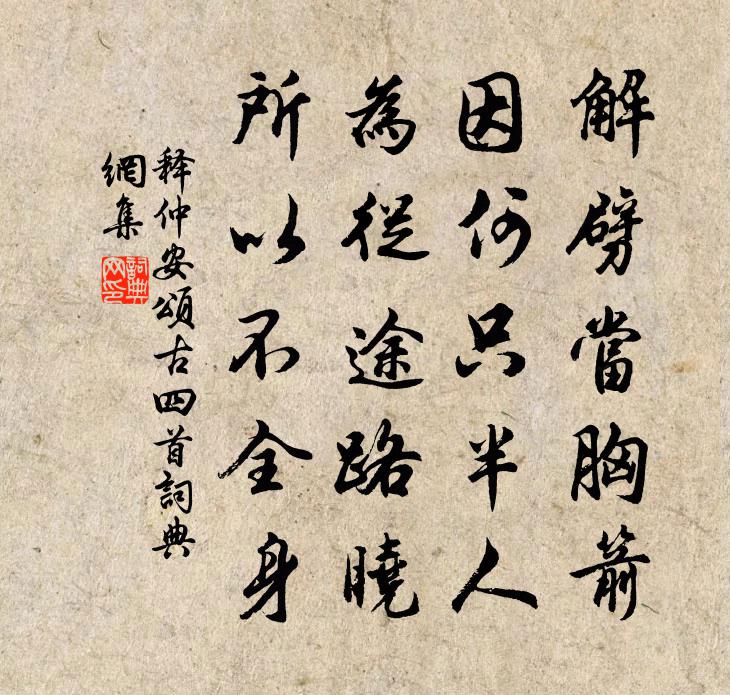 解劈當胸箭
因何只半人
為從途路曉
所以不全身
释仲安頌古四首詞典
網集
詞典
网印